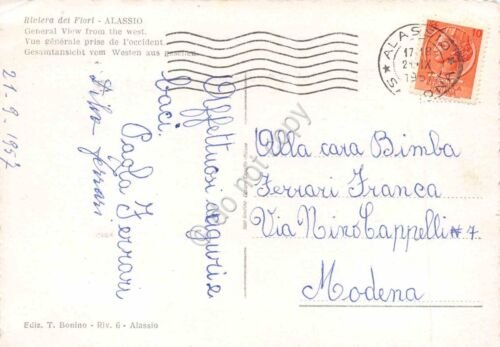 Riviera dei Fiori - ALASSIO
General View from the west.
Vue générale prise de l'occident.
Gesamtansicht vom Westen aus gesehen.
21-9-1957
Affettuosi auguri e
baci.
Paola Ferrari
Ferrari
ALASSIO
17-18
21 IX
1957
10
Alla cara Bimba
Ferrari Franca
Via Nino Cappelli N 7
Modena
Ediz. T. Bonino - Riv. 6 - Alassio
do not copy